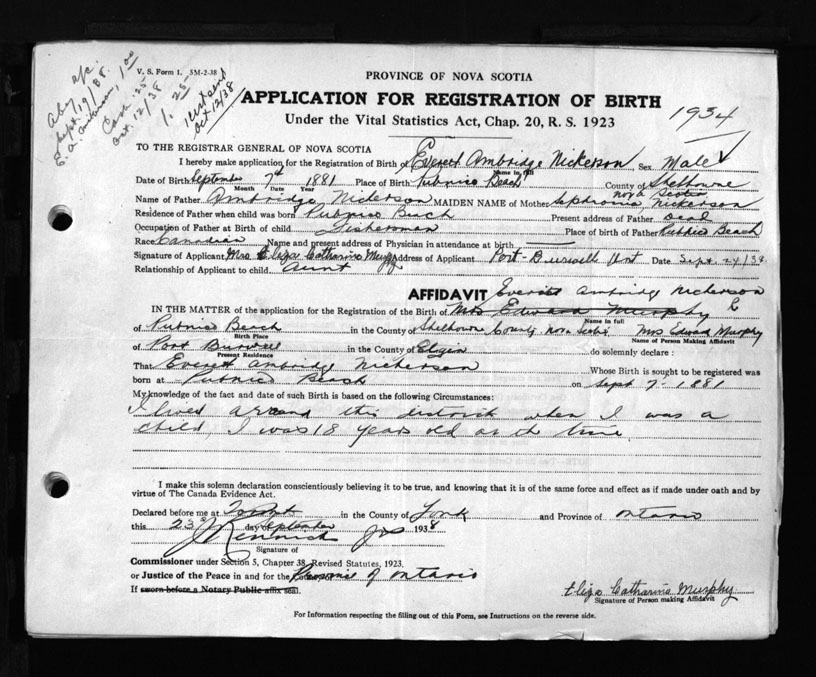 V. S. Form 1. 5M-2-38
Sept. 19/38.
Oct. 12/38
Oct 12/38
PROVINCE OF NOVA SCOTIA
APPLICATION FOR REGISTRATION OF BIRTH
Under the Vital Statistics Act, Chap. 20, R. S. 1923
1934
TO THE REGISTRAR GENERAL OF NOVA SCOTIA
I hereby make application for the Registration of Birth of Everett Ambridge Nickerson Sex Male
Name in full
Date of Birth September 7th 1881 Place of Birth Pubnico Beach County of Shelburne
Month Date Year
Nova Scotia
Name of Father Ambridge Nickerson MAIDEN NAME of Mother Sephronia Nickerson
Residence of Father when child was born Pubnico Beach Present address of Father Dead
Occupation of Father at Birth of child Fisherman Place of birth of Father Pubnico Beach
Race Canadian Name and present address of Physician in attendance at birth
Signature of Applicant Mrs Eliza Catharine Murphy Address of Applicant Port-Burwell Ont Date Sept. 24/38
Relationship of Applicant to child aunt
AFFIDAVIT Everett Ambridge Nickerson
IN THE MATTER of the application for the Registration of the Birth of Mrs Edward Murphy
Name in full
of Pubnico Beach in the County of Shelburne County Nova Scotia Mrs Edward Murphy
Birth Place Name of Person Making Affidavit
of Port Burwell in the County of Elgin do solemnly declare :
Present Residence
That Everett Ambridge Nickerson Whose Birth is sought to be registered was
born at Pubnico Beach on Sept 7- 1881
My knowledge of the fact and date of such Birth is based on the following Circumstances:
I lived around this district when I was a
child, I was 18 years old at the time
I make this solemn declaration conscientiously believing it to be true, and knowing that it is of the same force and effect as if made under oath and by
virtue of The Canada Evidence Act.
Declared before me at in the County of York and Province of Ontario
this 23rd day of September 1938
Signature of
Commissioner under Section 5, Chapter 38, Revised Statutes, 1923,
or Justice of the Peace in and for the Province of Ontario
If sworn before a Notary Public affix seal.
Eliza Catharine Murphy
Signature of Person making Affidavit
For Information respecting the filling out of this Form, see Instructions on the reverse side.